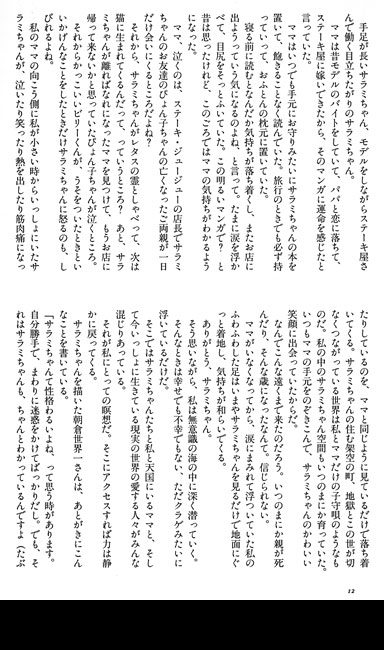 手足が長いサラミちゃん、モデルをしながらステーキ屋さ
んで働く目立ちたがりのサラミちゃん。
ママは昔モデルのバイトをしていて、パパと恋に落ちて、
ステーキ屋に嫁いできたから、そのマンガに運命を感じたと
言っていた。
ママはいつでも手元にお守りみたいにサラミちゃんの本を
置いて、飽きることなく読んでいた。旅行のときでも必ず持
っていって、おふとんの枕元に置いていた。
寝る前に読むとなんだか気持ちが落ち着くし、またお店に
出ようっていう気になるのよね、と言って。たまに涙を浮か
べて、目尻をそっとふいていた。この明るいマンガで？　と
昔は思ったけれど、このごろではママの気持ちがわかるよう
になった。
ママ、泣くのは、ステーキ・ジュージューの店長でサラミ
ちゃんのお友達のぴょん子ちゃんの亡くなったご両親が一日
だけ会いにくるところだよね？
それから、サラミちゃんがレタスの霊としゃべって、次は
猫に生まれてくるんだって、っていうところ？　あと、サラ
ミちゃんが離ればなれになったママを見つけて、もうお店に
帰って来ないかと思っていたぴょん子ちゃんが泣くところ。
それからかっこいいビリーくんが、うそをついたときとい
いかげんなことをしたときだけサラミちゃんに怒るのも、し
びれるよね。
私のママの向こう側に私が小さい時からいっしょにいたサ
ラミちゃんが、泣いたり笑ったり熱を出したり筋肉痛になっ
たりしているのを、ママと同じように見ているだけで落ち着
いてくる。サラミちゃんの住む架空の町、地獄とこの世が切
なくつながっている世界は私とママだけの子守唄のようなも
のだ。私の中のサラミちゃん空間もいつのまにか育っていた。
いつもママの手元をのぞきこんで、サラミちゃんのかわいい
笑顔に出会っていたからだ。
なんでこんな遠くまで来たのだろう。いつのまにか親が死
んだり、そんな歳になったなんて、信じられない。
ママがいなくなってから、涙にまみれて浮ついていた私の
ふわふわした足はいまやサラミちゃんを見るだけで地面にぐ
っと着地し、気持ちが和らいでくる。
ありがとう、サラミちゃん。
そう思いながら、私は無意識の海の中に深く潜っていく。
そんなときは幸せでも不幸でもない、ただクラゲみたいに
浮いているだけだ。
そこではサラミちゃんたちと私と天国にいるママと、そし
て今いっしょに生きている現実の世界の愛する人々がみんな
混じりあっている。
それが私にとっての瞑想だ。そこにアクセスすれば力は静
かに戻ってくる。
サラミちゃんを描いた朝倉世界一さんは、あとがきにこん
なことを書いている。
「サラミちゃんて性格わるいよね、って思う時があります。
自分勝手で、まわりに迷惑をかけてばっかりだし。でも、そ
れはサラミちゃんも、ちゃんとわかっているんですよ（たぶ
12